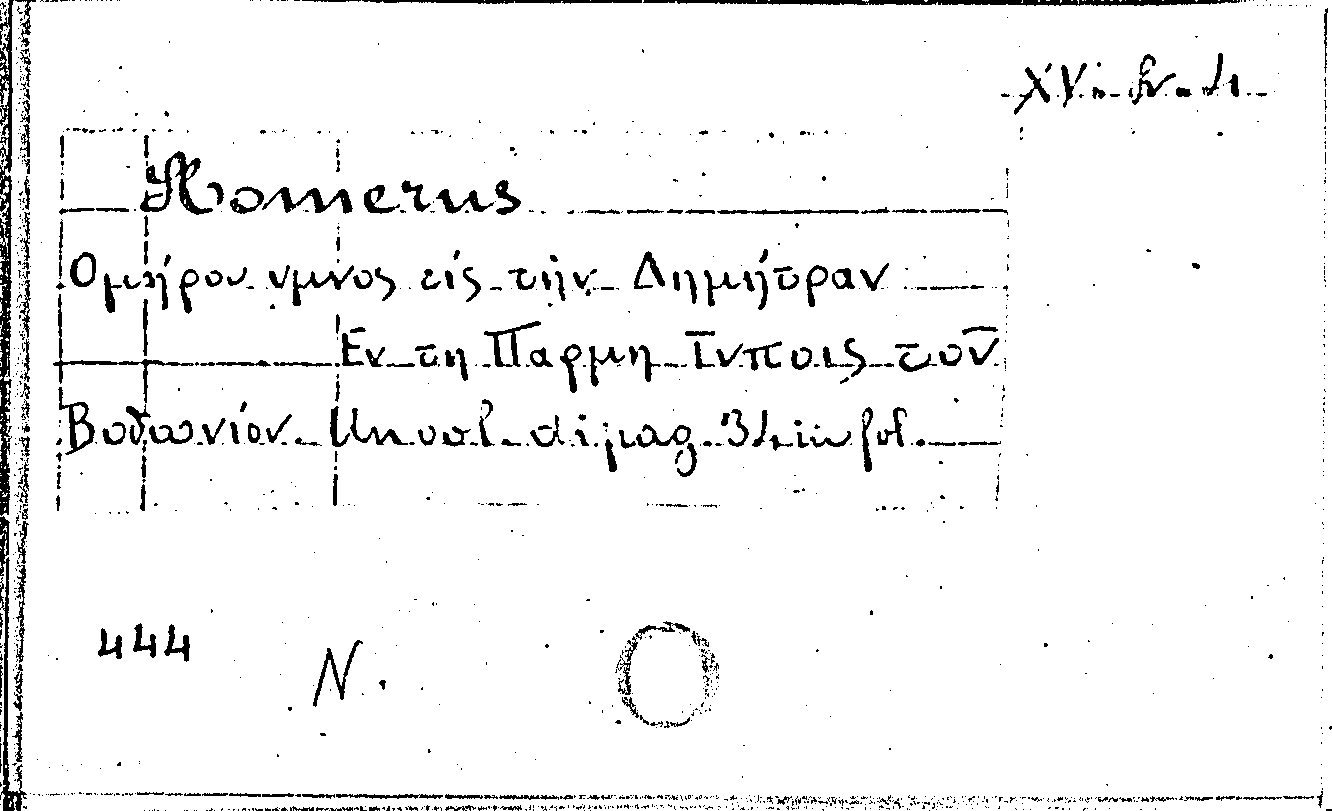 XV. A. 41
Homerus
Ομήρου υμνος είς τήν Δημήτραν
Εν τη Παρμη Τυποις τοῦ
Βοδωνίον Un vol. di pag. 34 in fol.
444
N.